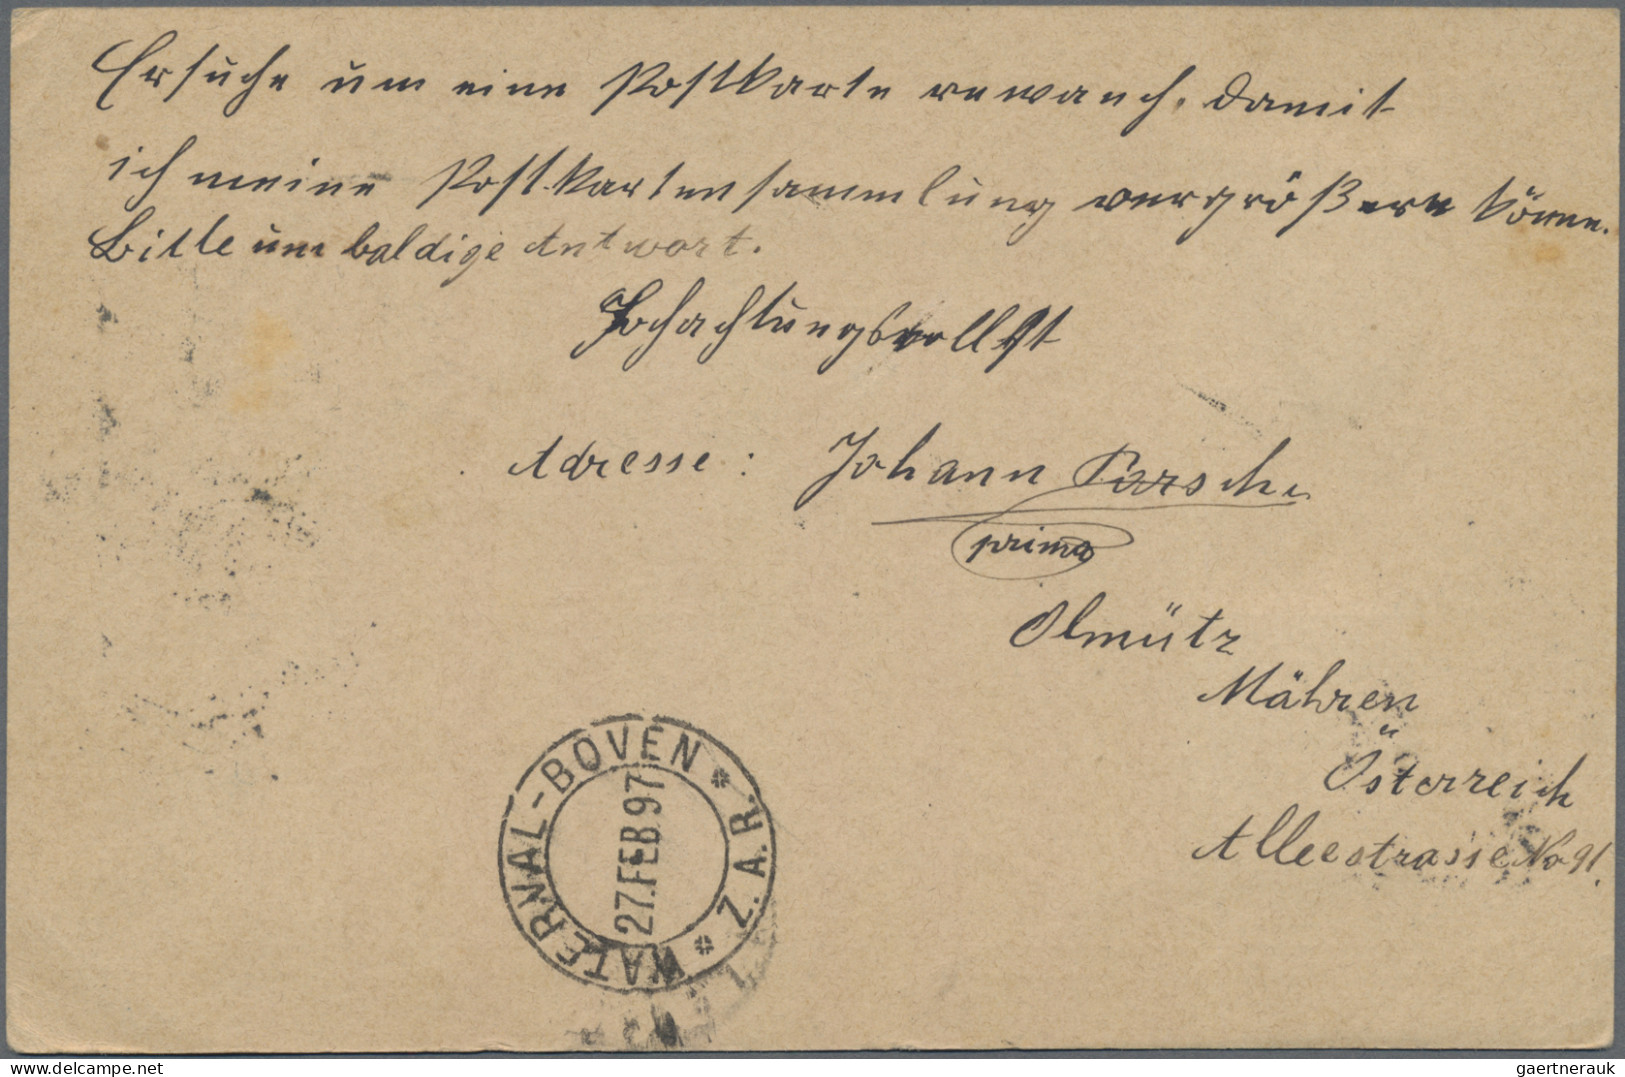 Ersuche um eine Postkarte rewanch, damit
ich meine Postkartensammlung vergrößern könne.
Bitte um baldige Antwort.
Hochachtungsvollst
Adresse: Johann
prima
Olmütz
Mähren
Österreich
Alleestrasse No 91.
WATERVAL-BOVEN
Z.A.R.
27.FEB.97
www.delcampe.net
gaertnerauk